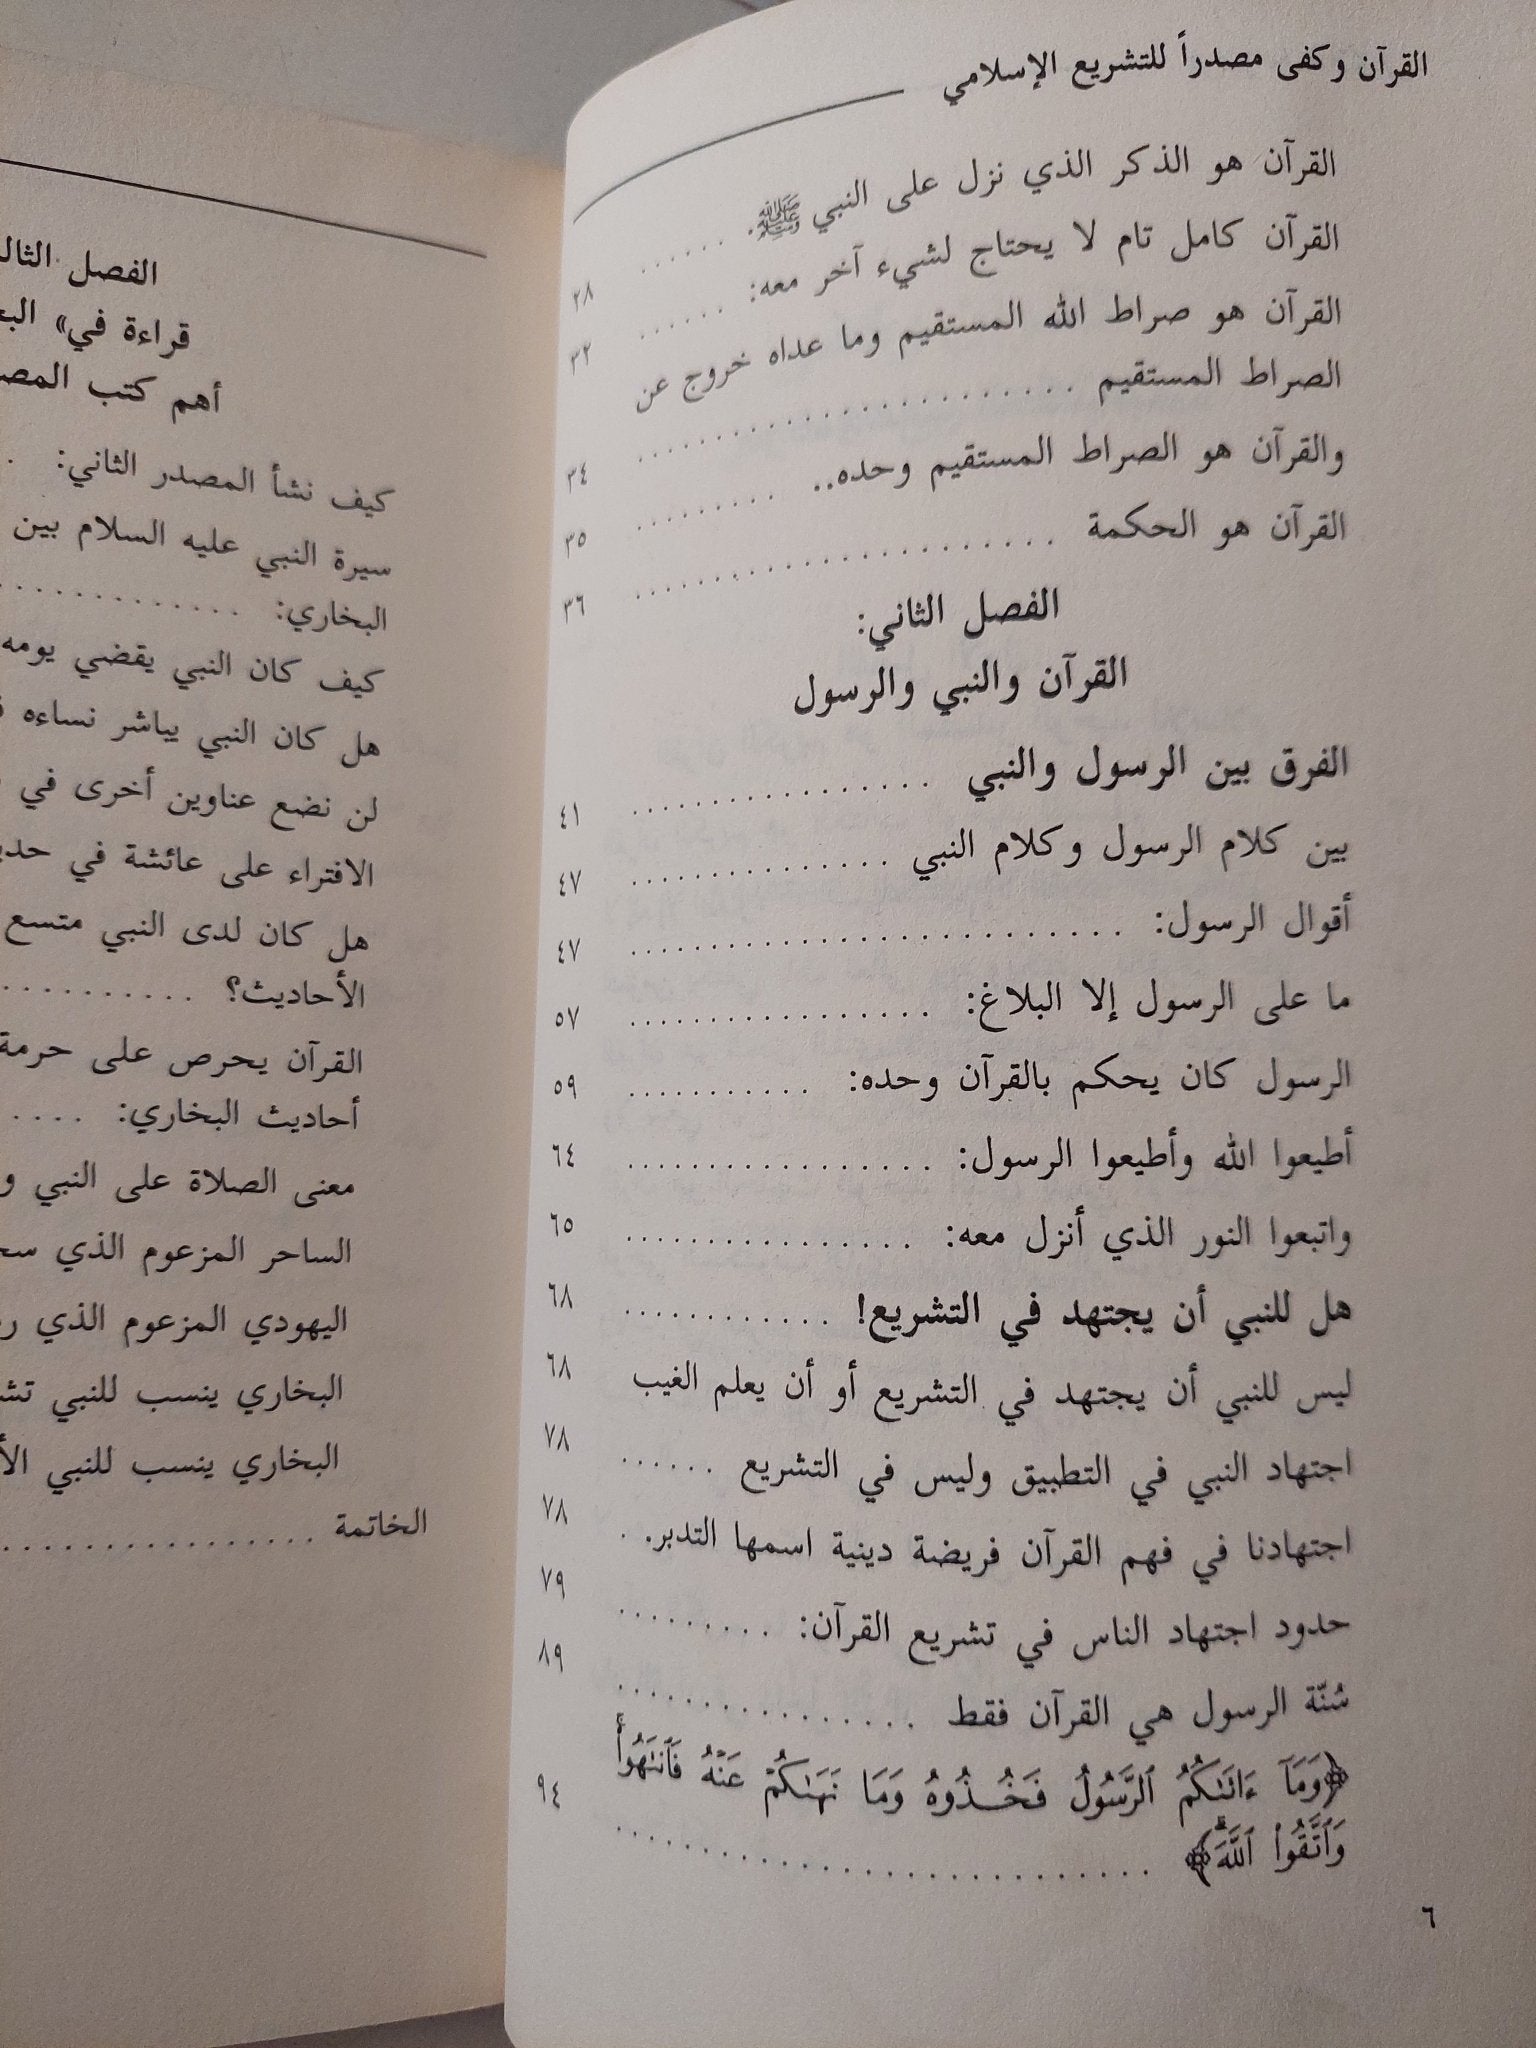 القرآن وكفى مصدراً للتشريع الإسلامي
القرآن هو الذكر الذي نزل على النبي ﷺ. ...... ٢٨
القرآن كامل تام لا يحتاج لشيء آخر معه: ...... ٣٢
القرآن هو صراط الله المستقيم وما عداه خروج عن
الصراط المستقيم ...................... ٣٤
والقرآن هو الصراط المستقيم وحده.. ......... ٣٥
القرآن هو الحكمة ...................... ٣٦
الفصل الثاني:
القرآن والنبي والرسول
الفرق بين الرسول والنبي ................. ٤١
بين كلام الرسول وكلام النبي ............... ٤٧
أقوال الرسول: ........................... ٤٧
ما على الرسول إلا البلاغ: ................. ٥٧
الرسول كان يحكم بالقرآن وحده: ........... ٥٩
أطيعوا الله وأطيعوا الرسول: ................. ٦٤
واتبعوا النور الذي أنزل معه: ................ ٦٥
هل للنبي أن يجتهد في التشريع! ........... ٦٨
ليس للنبي أن يجتهد في التشريع أو أن يعلم الغيب ٦٨
اجتهاد النبي في التطبيق وليس في التشريع ...... ٧٨
اجتهادنا في فهم القرآن فريضة دينية اسمها التدبر. . ٧٨
حدود اجتهاد الناس في تشريع القرآن: ......... ٧٩
سُنّة الرسول هي القرآن فقط ................ ٨٩
﴿وَمَآ ءَاتَىٰكُمُ ٱلرَّسُولُ فَخُـذُوهُ وَمَا نَهَىٰكُمْ عَنْهُ فَٱنتَهُوا۟ۚ
وَٱتَّقُوا۟ ٱللَّهَۖ﴾ ......................... ٩٤
٦
الفصل
قراءة في»
أهم كتب
كيف نشأ المصدر الثاني: .
سيرة النبي عليه السلام بين
البخاري: .............
كيف كان النبي يقضي يومه
هل كان النبي يباشر نساءه
لن نضع عناوين أخرى في
الافتراء على عائشة في
هل كان لدى النبي متسع
الأحاديث؟ ..........
القرآن يحرص على حرمة
أحاديث البخاري: ....
معنى الصلاة على النبي
الساحر المزعوم الذي
اليهودي المزعوم الذي
البخاري ينسب للنبي
البخاري ينسب للنبي
الخاتمة .................